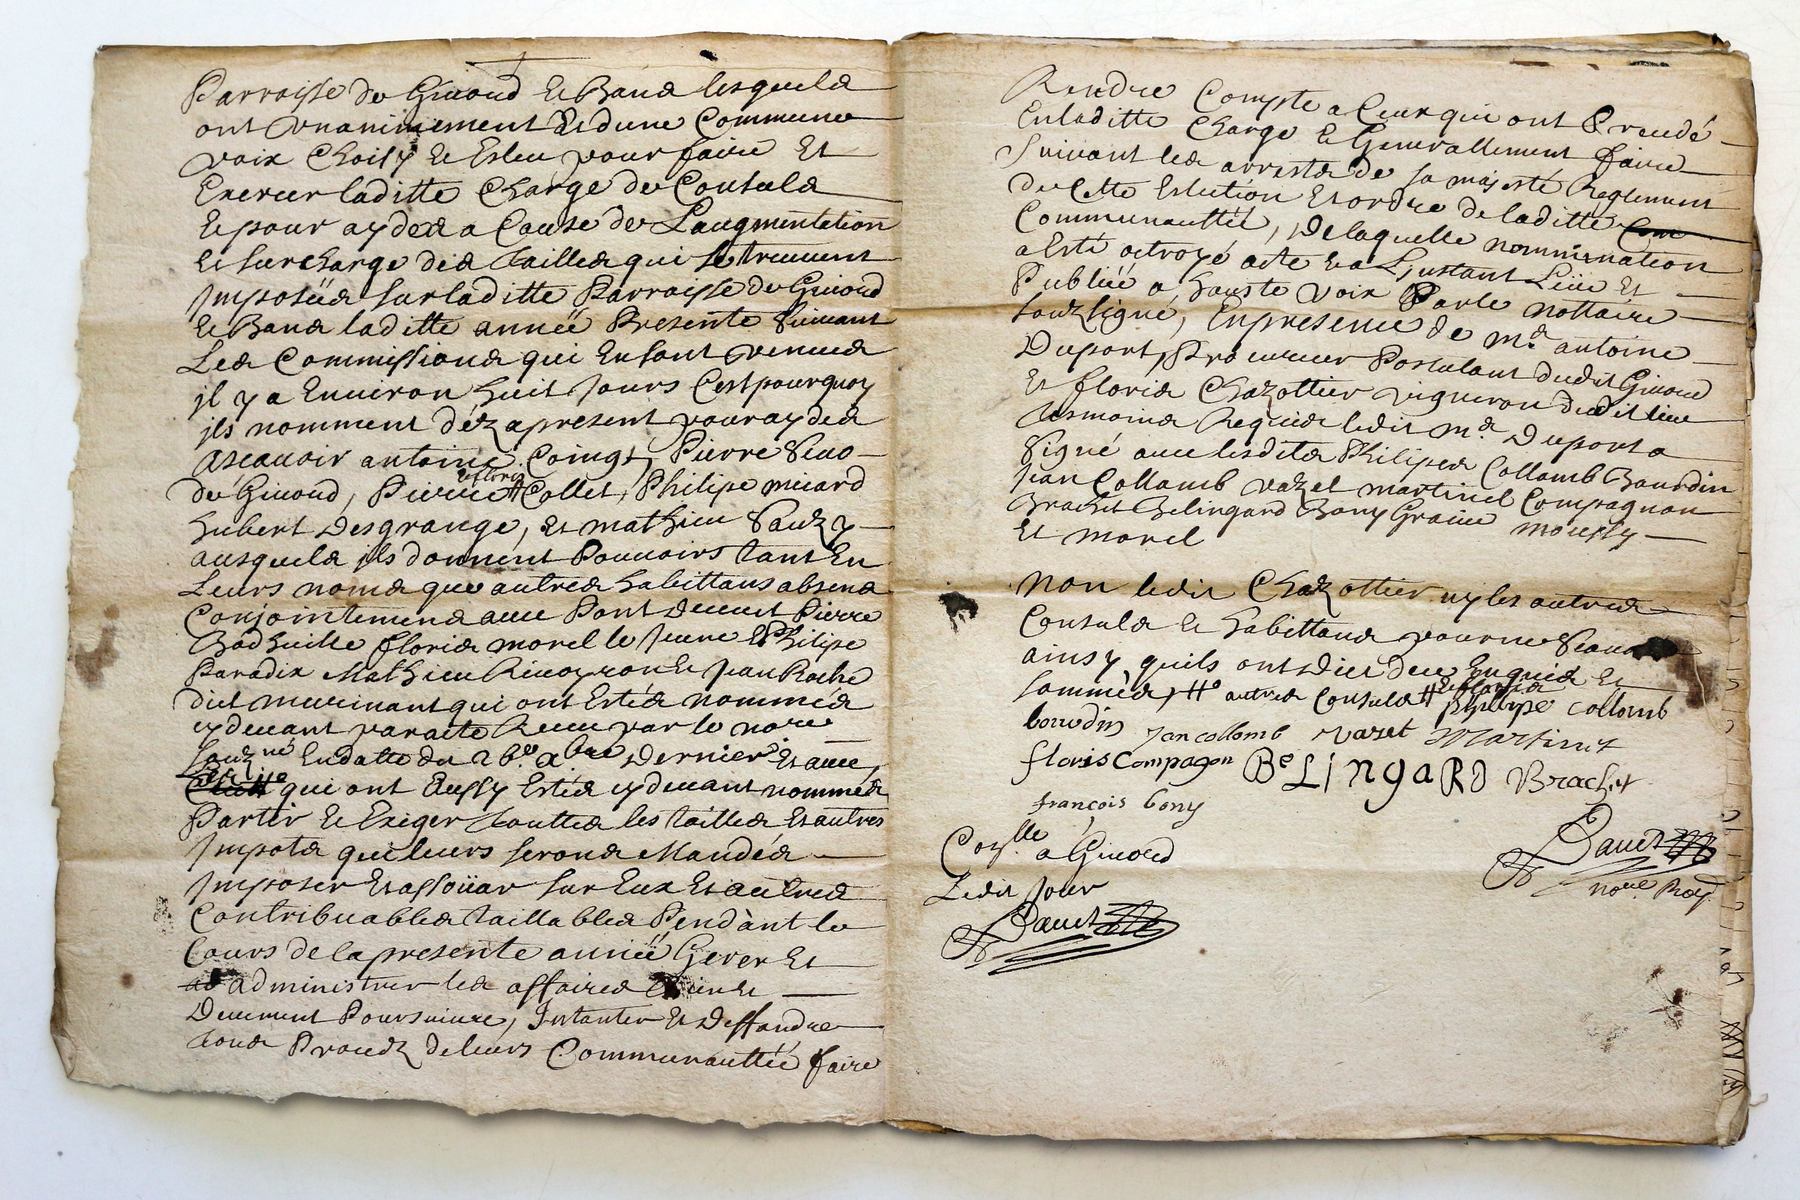 Parroisse de Giuord Et Bans lesquels
ont vnanimement Et dune Commune
voix Choisy Et Esleu pour faire Et
Exercer laditte Charge de Consuls
Et pour aydes a Cause de Laugmentation
Et surcharge des tailles qui se treuuent
Imposées sur laditte Parroisse de Giuord
Et Bans laditte année Presente Suiuant
Les Commissions qui En sont venues
il y a Enuiron huit Jours C'est pourquoy
ils nomment déz apresent pour aydes
Ascauoir antoine Coingt, Pierre Seuo
de Giuord, Pierre et floris Collet, Philipe micard
hubert Desgrange, Et mathieu Pauzy
ausquels ils donnent Pouuoirs tant En
Leurs noms que autres habittans absens
Conjointement auec Pont Pierre
floris morel le Jeune Et Philipe
Paradix Mathieu Et Jean Roche
dit murinant qui ont Estés nommés
cy deuant par acte Receu par le nore
souzné En datte du 26e xbre dernier Et auec
qui ont Aussy Estés cy deuant nommés
Partir Et Exiger touttes les tailles Et autres
Impots qui leurs seront Mandés
Imposer Et assoüar sur Eux Et autres
Contribuables taillables Pendant le
Cours de la presente année Gerer Et
administrer les affaires Bien Et
Deuement Poursuiure, Intanter Et Deffandre
tous Procedz de leurs Communauttée faire
Rendre Compte a Ceux qui ont Precedé
En laditte Charge Et Generallement faire
Suiuant les arrests de sa majesté Reglement
de Cette Eslection Et ordre de laditte Com
Communauttéé, De laquelle nommination
a Esté octroyé acte Et a L'Instant Leüe Et
Publiée a hauste voix Par le nottaire
souzligné, En presence de Me antoine
Duport, Procureur Postulant dudit Giuord
Et floris Chazottier vigneron dudit lieu
tesmoins Requis ledit Me Duport a
Signé auec lesdits Philipes Collomb Bourdin
Jean Collomb vazel martinet Compagnon
Brachet Belingard Bony Graiue moussy
Et morel
non ledit Chazottier ny les autres
Consuls Et habittans pour ne Scauoir
ainsy quils ont Dict de ce Enquis Et
sommés, autres Consuls Philipe Collomb
bourdin Jan collomb vazet Martinet
floris Compagon BeLingaRD Brachet
françois bony
Colle a Giuord
Ledit Jour
Dauet
Dauet
nore Roy